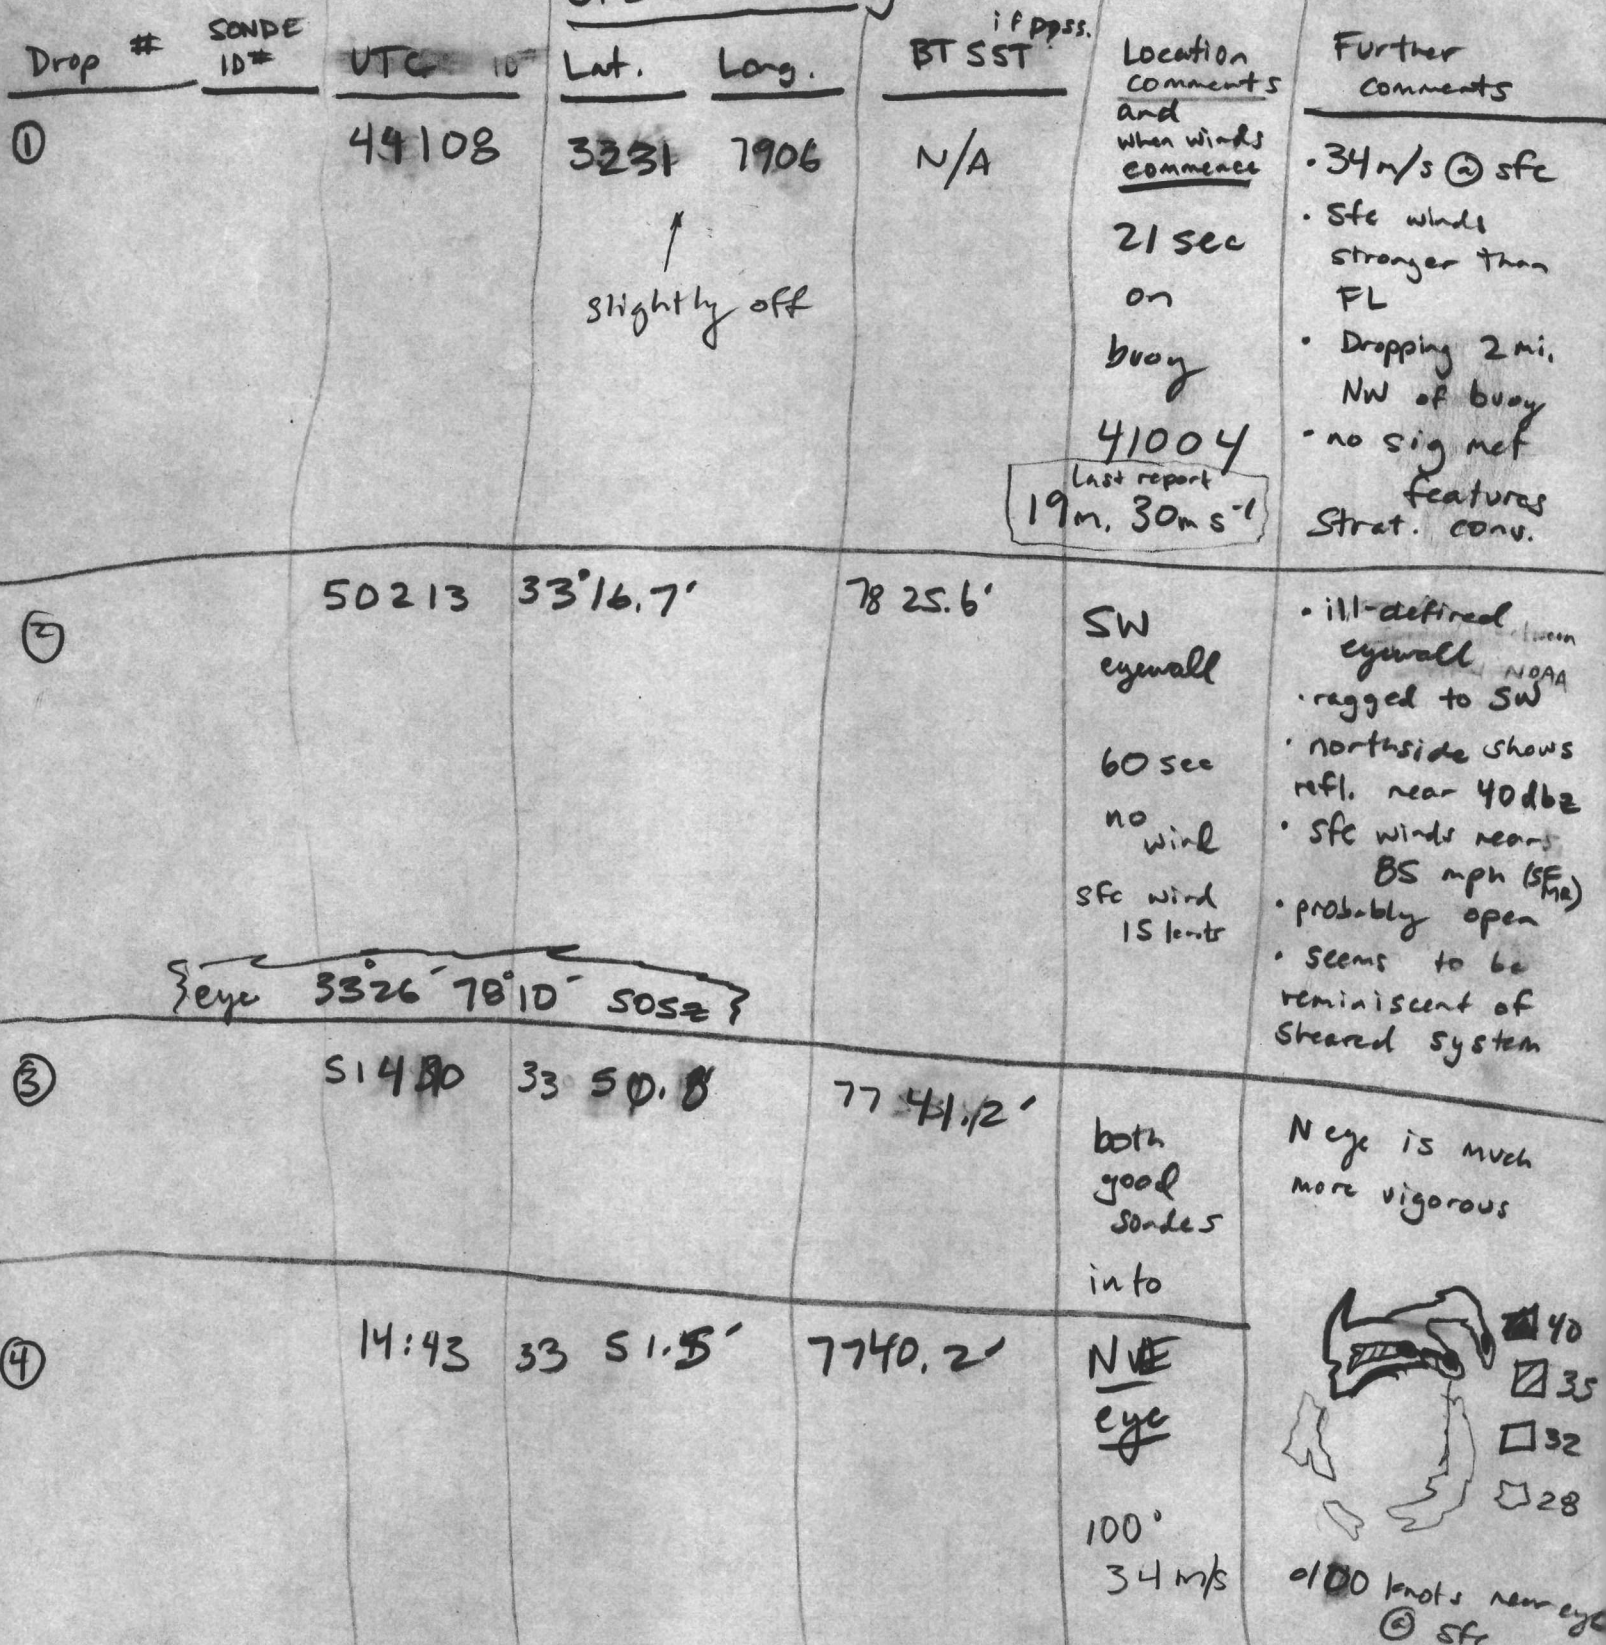 Drop # SONDE ID# UTC ID Lat. Long. BT SST if ppss. Location comments and when winds commence Further comments
① 44108 3231 7906 N/A
slightly off
21 sec
on
buoy
41004
Last report
19m. 30m s⁻¹
· 34 m/s @ sfc
· Sfc winds
stronger than
FL
· Dropping 2 mi.
NW of buoy
· no sig met
features
Strat. conv.
② 50213 33°16.7' 78 25.6'
SW
eyewall
60 sec
no
wind
sfc wind
15 knots
· ill-defined
eyewall NOAA
· ragged to SW
· northside shows
refl. near 40 dbz
· sfc winds near
85 mph (SFMR)
· probably open
· seems to be
reminiscent of
sheared system
{eye 33°26' 78°10' 505z}
③ 51430 33 50.8' 77 41.2'
both
good
sondes
into
N eye is much
more vigorous
④ 14:43 33 51.5' 7740.2'
NE
eye
100°
34 m/s
40
35
32
28
100 knots near eye
@ sfc